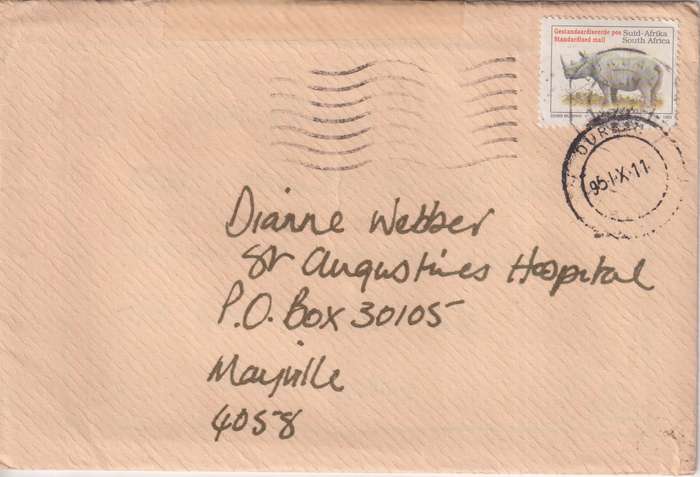 Gestandaardiseerde pos Suid-Afrika
Standardised mail South Africa
DURBAN
95·IX·11
Dianne Webber
St Augustines Hospital
P.O. Box 30105
Mayville
4058